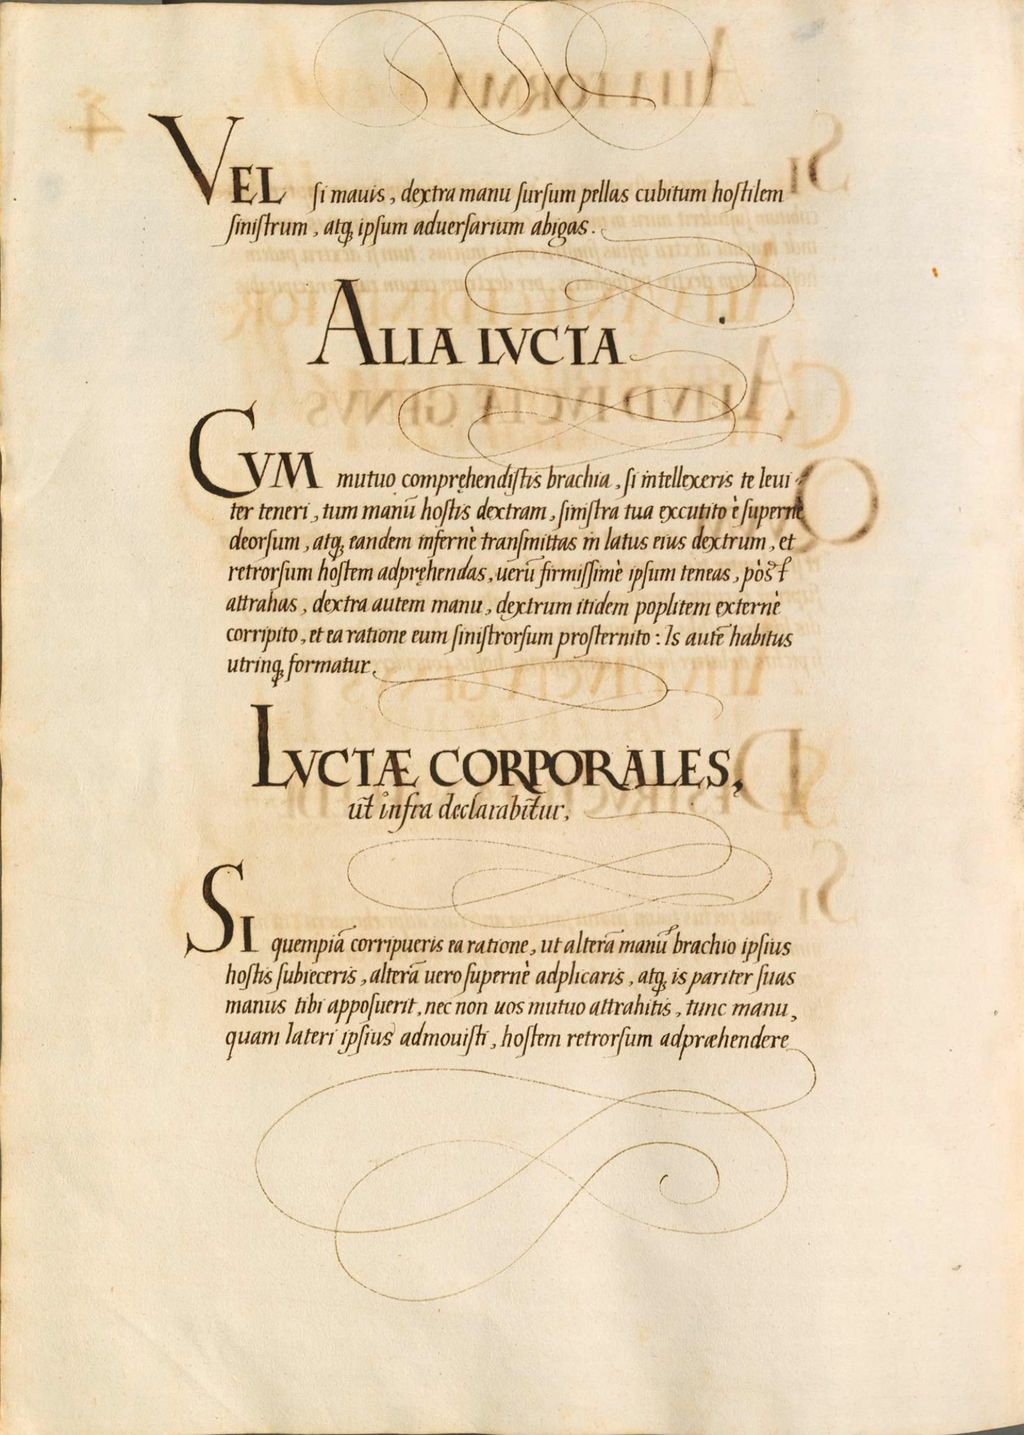 VEL ſi mauis, dextra manu ſurſum pellas cubitum hoſtilem
ſiniſtrum, atq, ipſum aduerſarium abigas.
ALIA LVCTA
CVM mutuo compręhendiſtis brachia, ſi intellexeris te leui
ter teneri, tum manū hoſtis dextram, ſiniſtra tua excutito è ſupernè
deorſum, atq, eandem infernè tranſmittas in latus eius dextrum, et
retrorſum hoſtem adpręhendas, uerū firmiſſimè ipſum teneas,
attrahas, dextra autem manu, dextrum itidem poplitem externè
corripito, et ea ratione eum ſiniſtrorſum proſternito: Is autē habitus
utrinq, formatur.
LVCTÆ CORPORALES,
ut infra declarabitur,
SI quempiā corripueris ea ratione, ut alterā manū brachio ipſius
hoſtis ſubieceris, alterā uero ſupernè adplicaris, atq, is pariter ſuas
manus tibi appoſuerit, nec non uos mutuo attrahitis, tunc manu,
quam lateri ipſius admouiſti, hoſtem retrorſum adpræhendere